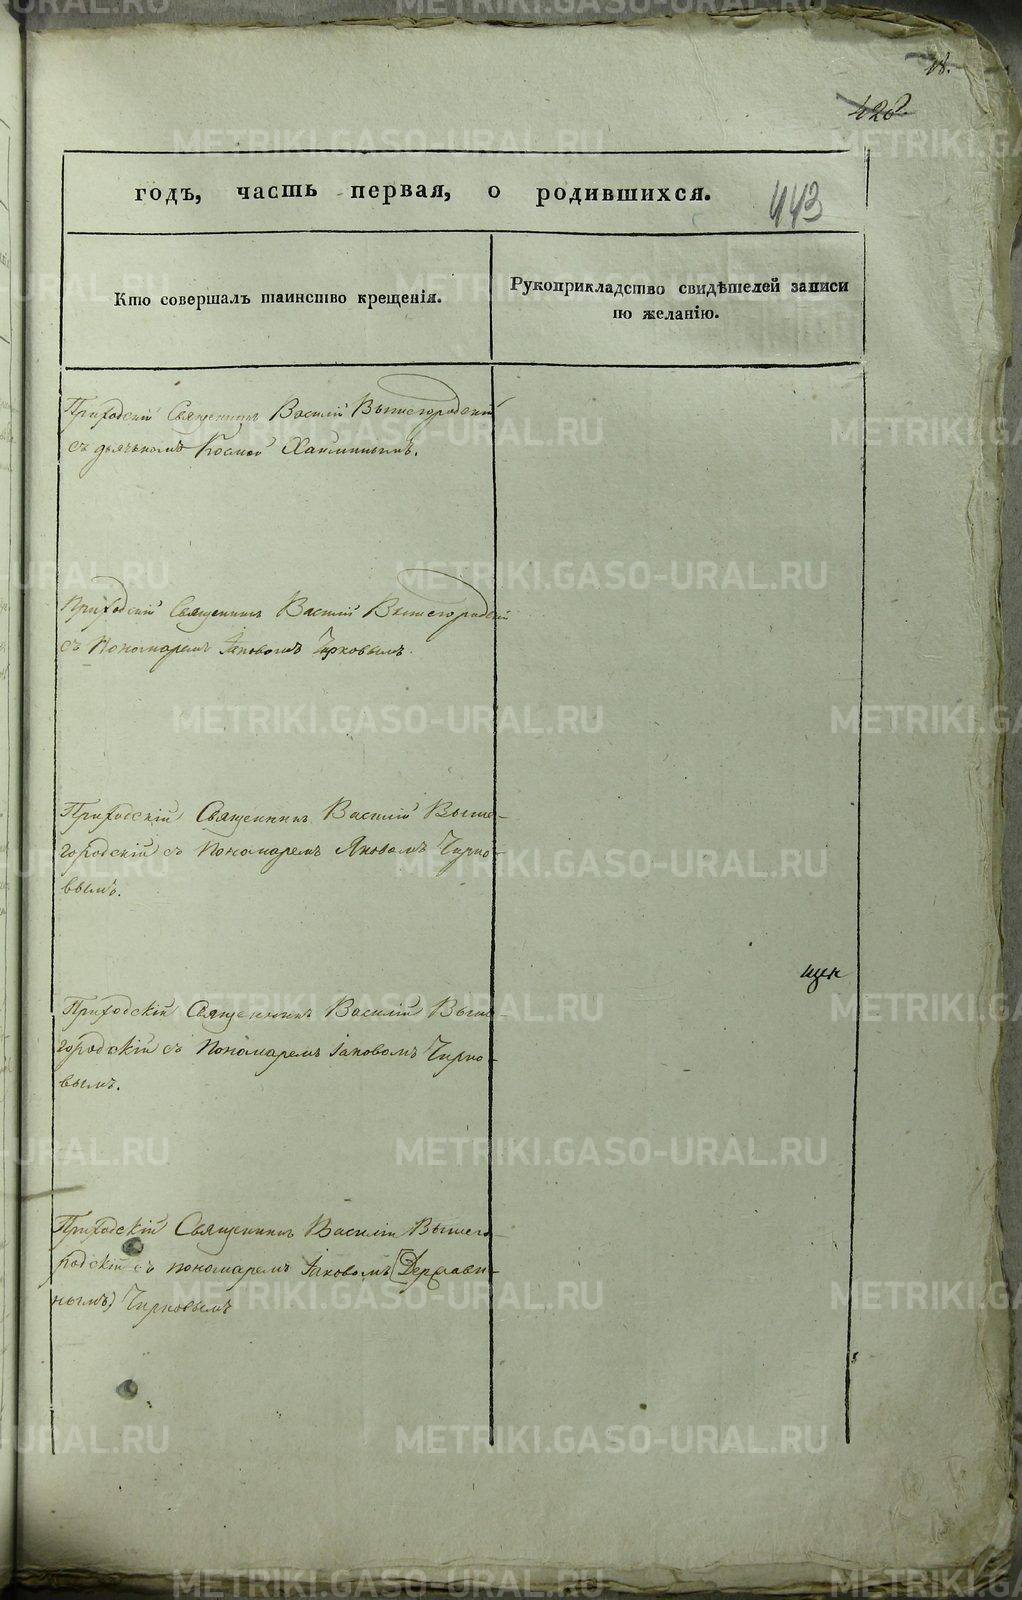 18.
426
годъ, часть первая, о родившихся.
443
Кто совершалъ таинство крещенія.
Рукоприкладство свидѣтелей записи
по желанію.
Приходскій Священникъ Василій Вышегородскій
съ дьячкомъ Космой
Приходскій Священникъ Василій Вышегородскій
съ Пономаремъ Іаковомъ Чирковымъ.
Приходскій Священникъ Василій Выше-
городскій съ Пономаремъ Яковомъ Чирко-
вымъ.
щен
Приходскій Священникъ Василій Выше-
городскій съ Пономаремъ Іаковомъ Чирко-
вымъ.
Приходскій Священникъ Василій Вышего-
родскій съ пономаремъ Іаковомъ (Держави-
нымъ) Чирковымъ
METRIKI.GASO-URAL.RU